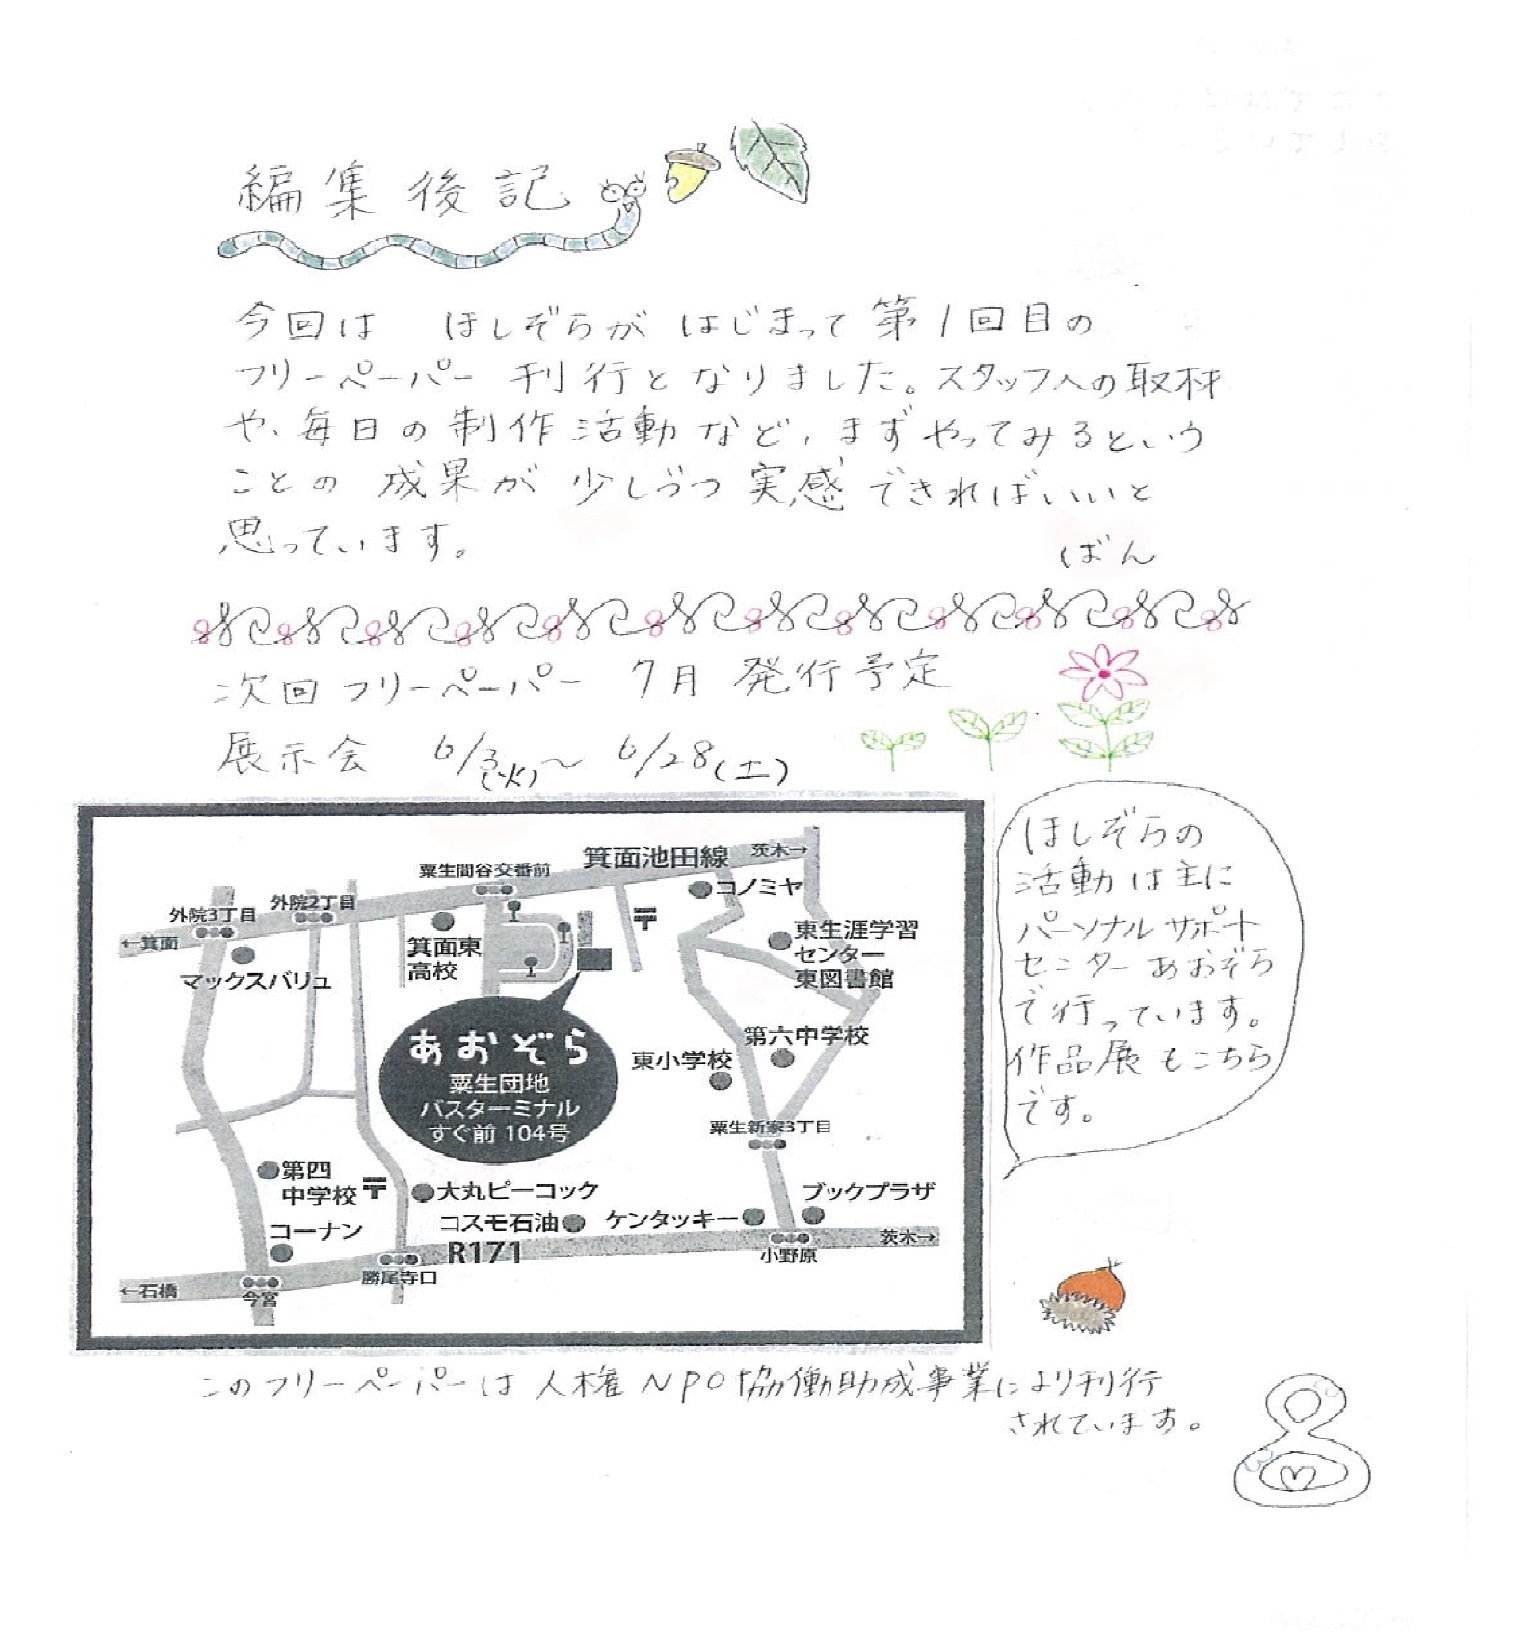 編集後記
今回は ほしぞらが はじまって 第1回目の
フリーペーパー 刊行となりました。スタッフへの取材
や、毎日の制作活動など、まずやってみるという
ことの 成果が 少しづつ 実感できればいいと
思っています。
ばん
次回フリーペーパー 7月 発行予定
展示会 6/3(火)～ 6/28(土)
箕面池田線
茨木→
粟生間谷交番前
コノミヤ
外院2丁目
外院3丁目
〒
←箕面
箕面東
高校
東生涯学習
センター
東図書館
マックスバリュ
あおぞら
粟生団地
バスターミナル
すぐ前 104号
第六中学校
東小学校
粟生新家3丁目
第四
中学校
〒
大丸ピーコック
ブックプラザ
コスモ石油
ケンタッキー
コーナン
R171
茨木→
小野原
勝尾寺口
←石橋
今宮
ほしぞらの
活動は主に
パーソナルサポート
センターあおぞら
で行っています。
作品展もこちら
です。
このフリーペーパーは人権NPO協働助成事業により刊行
されています。